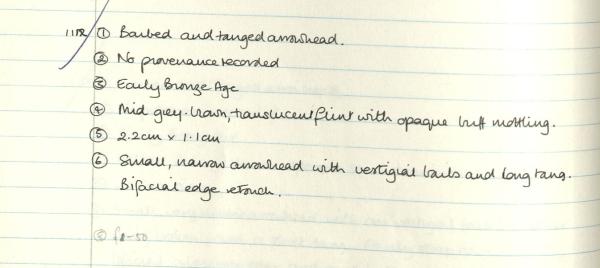 1112 ① Barbed and tanged arrowhead.
② No provenance recorded
③ Early Bronze Age
④ Mid grey-brown, translucent flint with opaque buff mottling.
⑤ 2.2cm x 1.1cm
⑥ Small, narrow arrowhead with vestigial barbs and long tang.
Bifacial edge retouch.